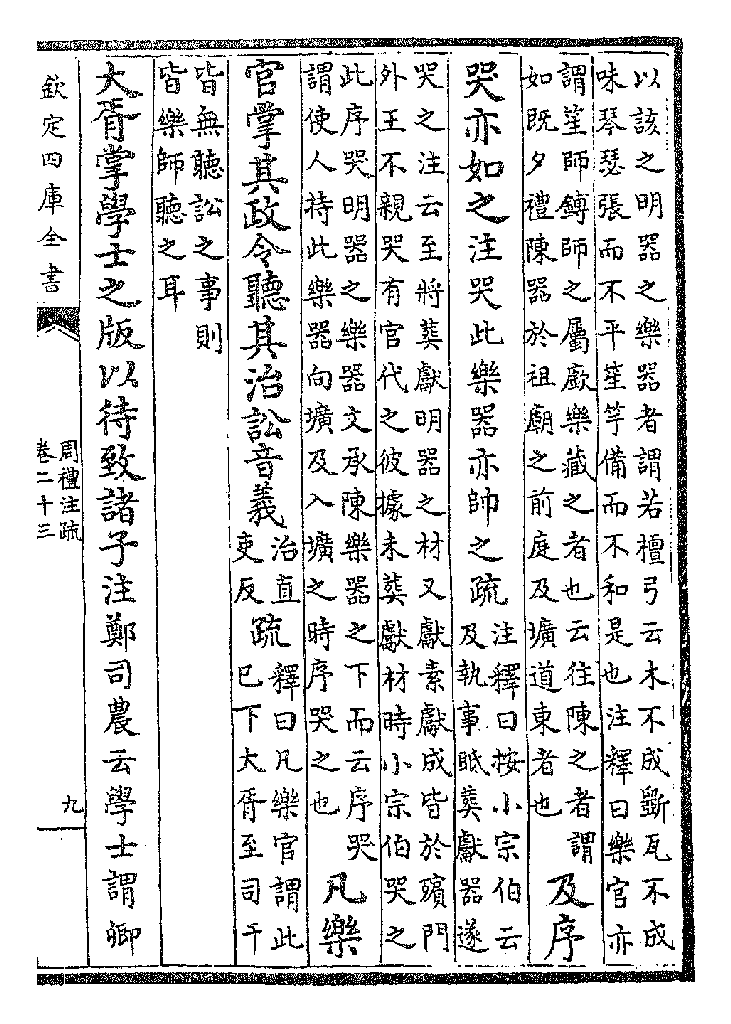 以該之明器之樂器者謂若檀弓云木不成斵瓦不成
味琴瑟張而不平笙竽備而不和是也注釋曰樂官亦
謂笙師鎛師之屬廞樂藏之者也云往陳之者謂
如既夕禮陳器於祖廟之前庭及壙道東者也
及序
哭亦如之注哭此樂器亦帥之疏
注釋曰按小宗伯云
及執事眡葬獻器遂
哭之注云至將葬獻明器之材又獻素獻成皆於殯門
外王不親哭有官代之彼據未葬獻材時小宗伯哭之
此序哭明器之樂器文承陳樂器之下而云序哭
謂使人持此樂器向壙及入壙之時序哭之也
凡樂
官掌其政令聽其治訟音義
治直
吏反
疏
釋曰凡樂官謂此
已下大胥至司干
皆無聽訟之事則
皆樂師聽之耳
大胥掌學士之版以待致諸子注鄭司農云學士謂卿
欽定四庫全書
周禮注疏
卷二十三
九